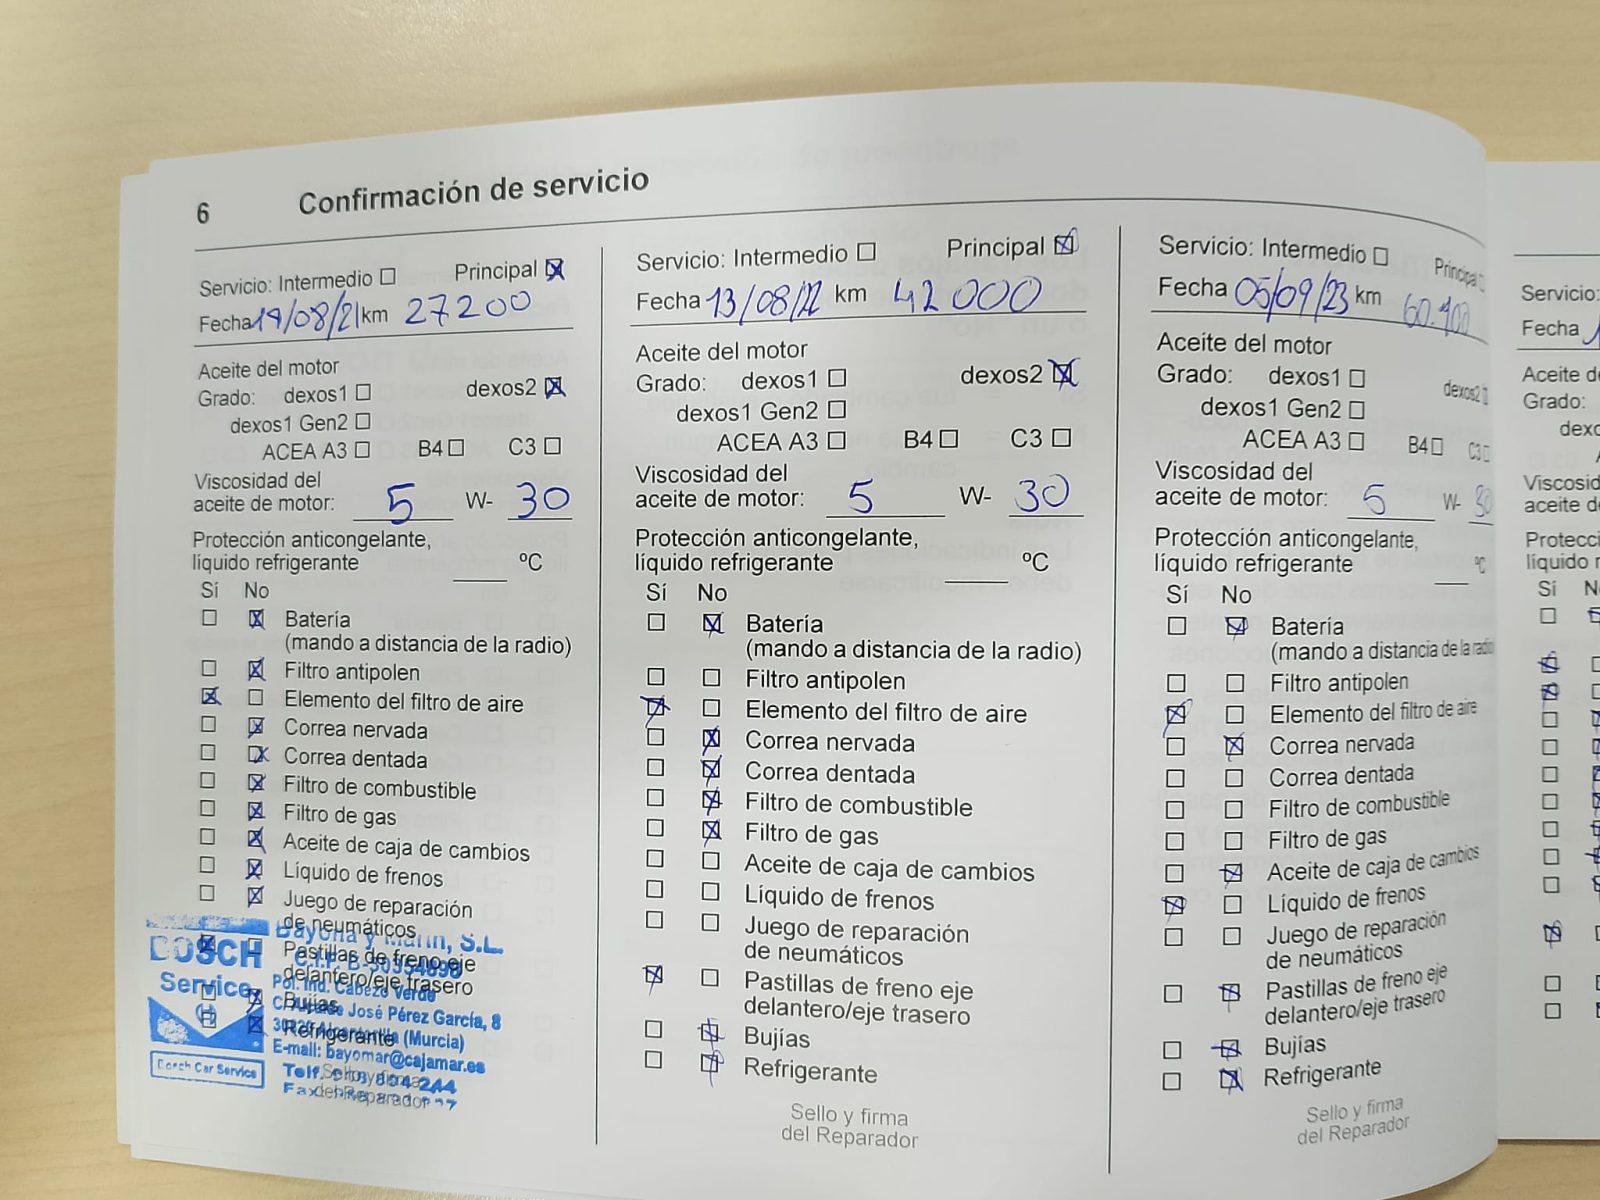 6 Confirmación de servicio
Servicio: Intermedio ☐ Principal ☒
Fecha 19/08/21 km 27200
Aceite del motor
Grado: dexos1 ☐ dexos2 ☒
dexos1 Gen2 ☐
ACEA A3 ☐ B4 ☐ C3 ☐
Viscosidad del
aceite de motor: 5 W- 30
Protección anticongelante,
líquido refrigerante ____ °C
Sí No
☐ ☒ Batería
(mando a distancia de la radio)
☐ ☒ Filtro antipolen
☒ ☐ Elemento del filtro de aire
☐ ☒ Correa nervada
☐ ☒ Correa dentada
☐ ☒ Filtro de combustible
☐ ☒ Filtro de gas
☐ ☒ Aceite de caja de cambios
☐ ☒ Líquido de frenos
☐ ☒ Juego de reparación
de neumáticos
☒ ☐ Pastillas de freno eje
delantero/eje trasero
☐ ☒ Bujías
☐ ☒ Refrigerante
Sello y firma
del Reparador
BOSCH
Service
Bosch Car Service
Bayona y Marín, S.L.
C.I.F. B-30354898
Pol. Ind. Cabezo Verde
José Pérez García, 8
(Murcia)
E-mail: bayomar@cajamar.es
Telf.
Fax
Servicio: Intermedio ☐ Principal ☒
Fecha 13/08/22 km 42000
Aceite del motor
Grado: dexos1 ☐ dexos2 ☒
dexos1 Gen2 ☐
ACEA A3 ☐ B4 ☐ C3 ☐
Viscosidad del
aceite de motor: 5 W- 30
Protección anticongelante,
líquido refrigerante ____ °C
Sí No
☐ ☒ Batería
(mando a distancia de la radio)
☐ ☐ Filtro antipolen
☒ ☐ Elemento del filtro de aire
☐ ☒ Correa nervada
☐ ☒ Correa dentada
☐ ☒ Filtro de combustible
☐ ☒ Filtro de gas
☐ ☐ Aceite de caja de cambios
☐ ☐ Líquido de frenos
☐ ☐ Juego de reparación
de neumáticos
☒ ☐ Pastillas de freno eje
delantero/eje trasero
☐ ☒ Bujías
☐ ☒ Refrigerante
Sello y firma
del Reparador
Servicio: Intermedio ☐ Principal ☐
Fecha 05/09/23 km
Aceite del motor
Grado: dexos1 ☐ dexos2 ☐
dexos1 Gen2 ☐
ACEA A3 ☐ B4 ☐ C3 ☐
Viscosidad del
aceite de motor: 5 W- 30
Protección anticongelante,
líquido refrigerante ____ °C
Sí No
☐ ☒ Batería
(mando a distancia de la radio)
☐ ☐ Filtro antipolen
☒ ☐ Elemento del filtro de aire
☐ ☒ Correa nervada
☐ ☐ Correa dentada
☐ ☐ Filtro de combustible
☐ ☐ Filtro de gas
☐ ☒ Aceite de caja de cambios
☒ ☐ Líquido de frenos
☐ ☐ Juego de reparación
de neumáticos
☐ ☒ Pastillas de freno eje
delantero/eje trasero
☐ ☒ Bujías
☐ ☒ Refrigerante
Sello y firma
del Reparador
Servicio:
Fecha
Aceite
Grado:
aceite
Sí